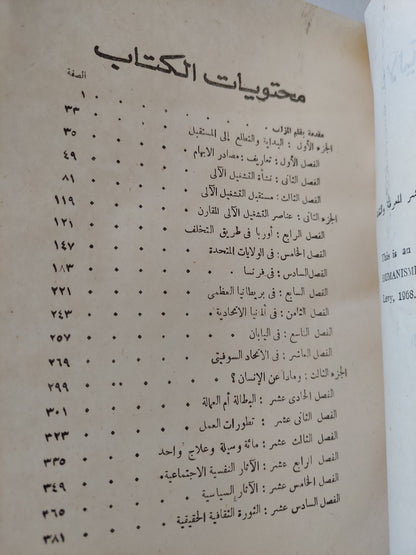 محتويات الكتاب
الصفحة
مقدمة بقلم المراجع . . . . . . . . ١
الجزء الأول : البداية والتطلع إلى المستقبل . . . ٣٣
الفصل الأول : تعاريف : مصادر الابهام . . . ٣٥
الفصل الثانى : نشأة التشغيل الآلى . . . ٤٩
الفصل الثالث : مستقبل التشغيل الآلى . . . ٨١
الجزء الثانى : عناصر التشغيل الآلى المقارن . . . ١١٩
الفصل الرابع : أوربا فى طريق التخلف . . . ١٢١
الفصل الخامس : فى الولايات المتحدة . . . ١٤٧
الفصل السادس : فى فرنسا . . . ١٨٣
الفصل السابع : فى بريطانيا العظمى . . . ٢٢١
الفصل الثامن : فى ألمانيا الاتحادية . . . ٢٤٣
الفصل التاسع : فى اليابان . . . ٢٥٧
الفصل العاشر : فى الاتحاد السوفيتى . . . ٢٦٩
الجزء الثالث : وماذا عن الإنسان ؟ . . . ٢٩٩
الفصل الحادى عشر : البطالة أم العمالة . . . ٣٠١
الفصل الثانى عشر : تطورات العمل . . . ٣٢٣
الفصل الثالث عشر : مائة وسيلة وعلاج واحد . . . ٣٣٥
الفصل الرابع عشر : الآثار النفسية الاجتماعية . . . ٣٤٩
الفصل الخامس عشر : الآثار السياسية . . . ٣٦٥
الفصل السادس عشر : الثورة الثقافية الحقيقية . . . ٣٨١
This is an
HUMANISME
Levy, 1968.